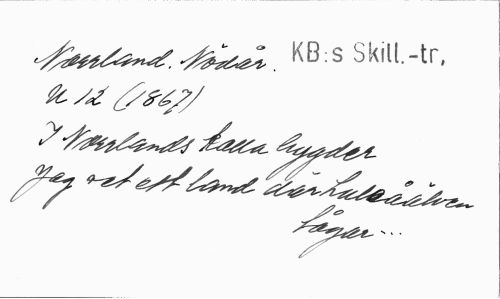 Norrland. Nödår. KB:s Skill.-tr.
U 12 (1867)
I Norrlands kalla bygder
Jag vet ett land där Luleåälven
tågar...